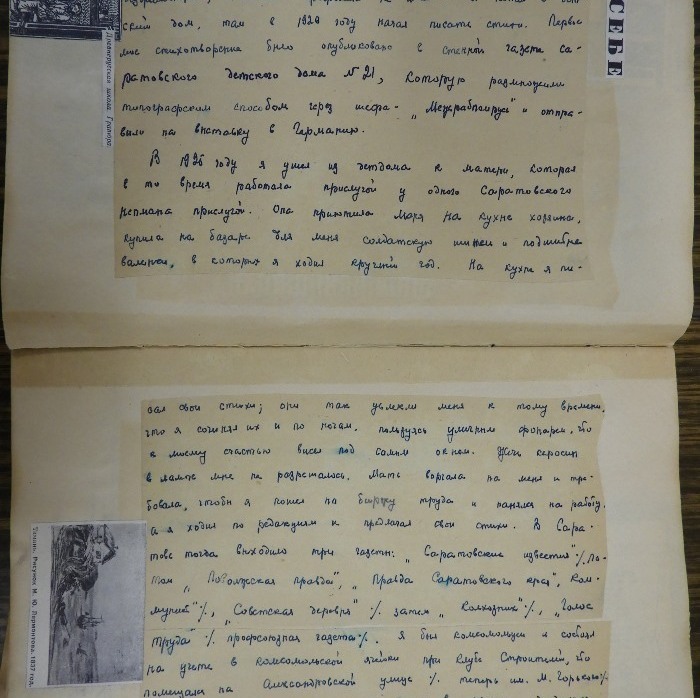 ский дом, там в 1924 году начал писать стихи. Первое
мое стихотворение было опубликовано в стенной газете Са-
ратовского детского дома №21, которую размножили
типографским способом через шефа- „Межрабпомрусь" и отпра-
вили на выставку в Германию.
В 1926 году я ушел из детдома к матери, которая
в то время работала прислугой у одного Саратовского
непмана прислугой. Она приютила меня на кухне хозяина,
купила на базаре для меня солдатскую шинель и подшитые
валенки, в которых я ходил круглый год. На кухне я пи-
СЕБЕ
Древнерусская школа. Гравюра.
сал свои стихи; они так увлекли меня к тому времени,
что я сочинял их и по ночам, пользуясь уличным фонарем, что
к моему счастью висел под самым окном. Жечь керосин
в лампе мне не разрешалось. Мать ворчала на меня и тре-
бовала, чтобы я пошел на биржу труда и нанялся на работу,
а я ходил по редакциям и предлагал свои стихи. В Сара-
тове тогда выходило три газеты: „Саратовские известия" /. По-
том „Поволжская правда", „Правда Саратовского края", Ком-
мунист" /., „Советская деревня" /. затем „Колхозник" /., „Голос
труда" /. профсоюзная газета /. Я был комсомольцем и состоял
на учете в комсомольской ячейке при клубе Строителей, что
помещался на Александровской улице /. теперь им. М. Горького /.
Тамань. Рисунок М. Ю. Лермонтова. 1837 год.